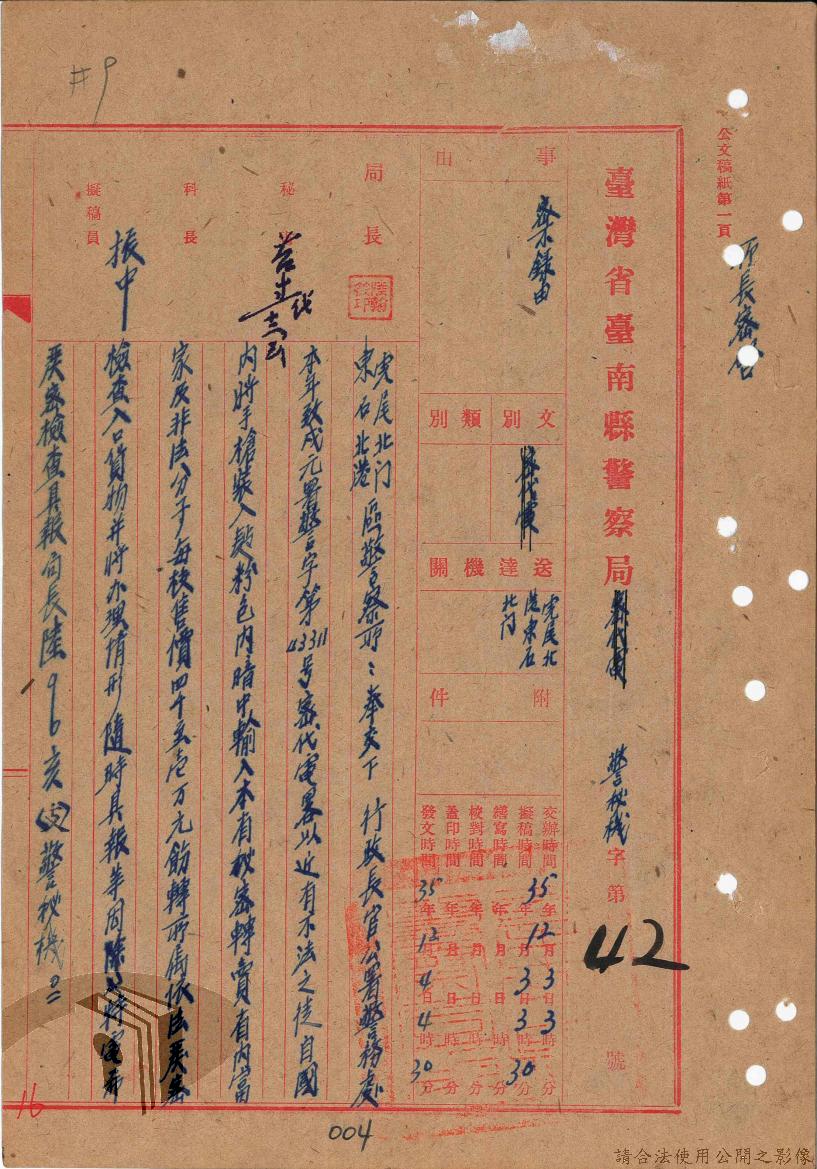 公文稿紙第一頁
臺灣省臺南縣警察局 警秘機字第42號
事由
案錄由
文別
類別
送達機關
虎尾北
港東石
北门
附件
交辦時間 35年12月3日3時 分
擬稿時間 年 月3日3時30分
繕寫時間 年 月 日 時 分
校對時間 年 月 日 時 分
蓋印時間 年 月 日 時 分
發文時間 35年12月4日4時30分
局長
秘
科長
擬稿員
振中
虎尾北门
東石北港
區警察所：奉交下 行政長官公署警務處
本年致戌元署警字第43311号密代電畧以近有不法之徒自國
內將手槍裝入 粉包內暗中輸入本省秘密轉賣省內富
家及非法分子每枝售價四千 壱万元飭轉所屬依法嚴密
檢查入口貨物并將办理情形隨時具報等因 特電希
嚴密檢查具報局長陸96亥 警秘機
#9
16
004
請合法使用公開之影像